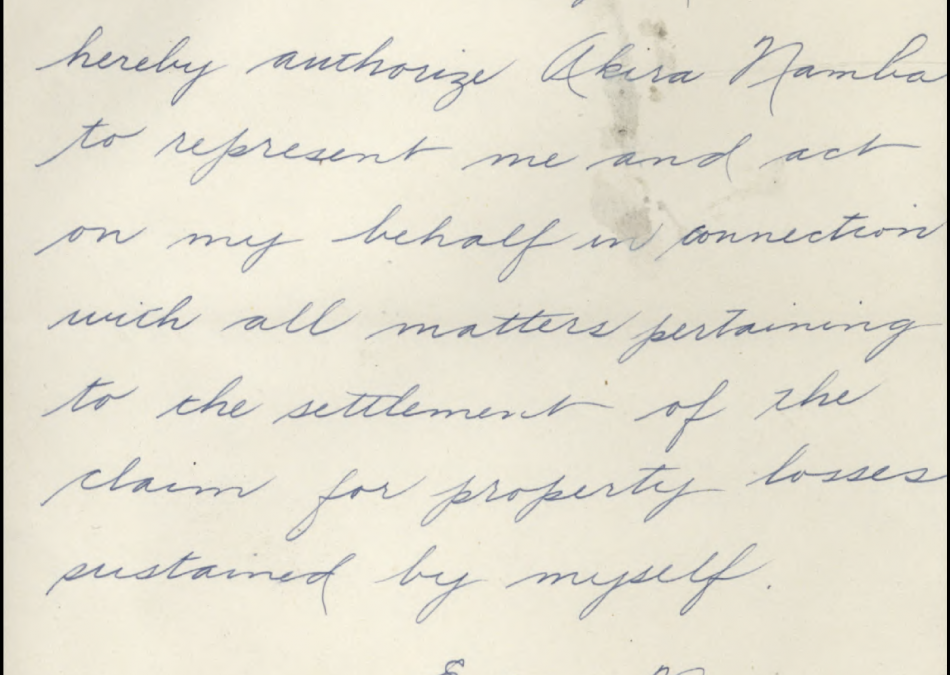 hereby authorize Akira Namba
to represent me and act
on my behalf in connection
with all matters pertaining
to the settlement of the
claim for property losses
sustained by myself.